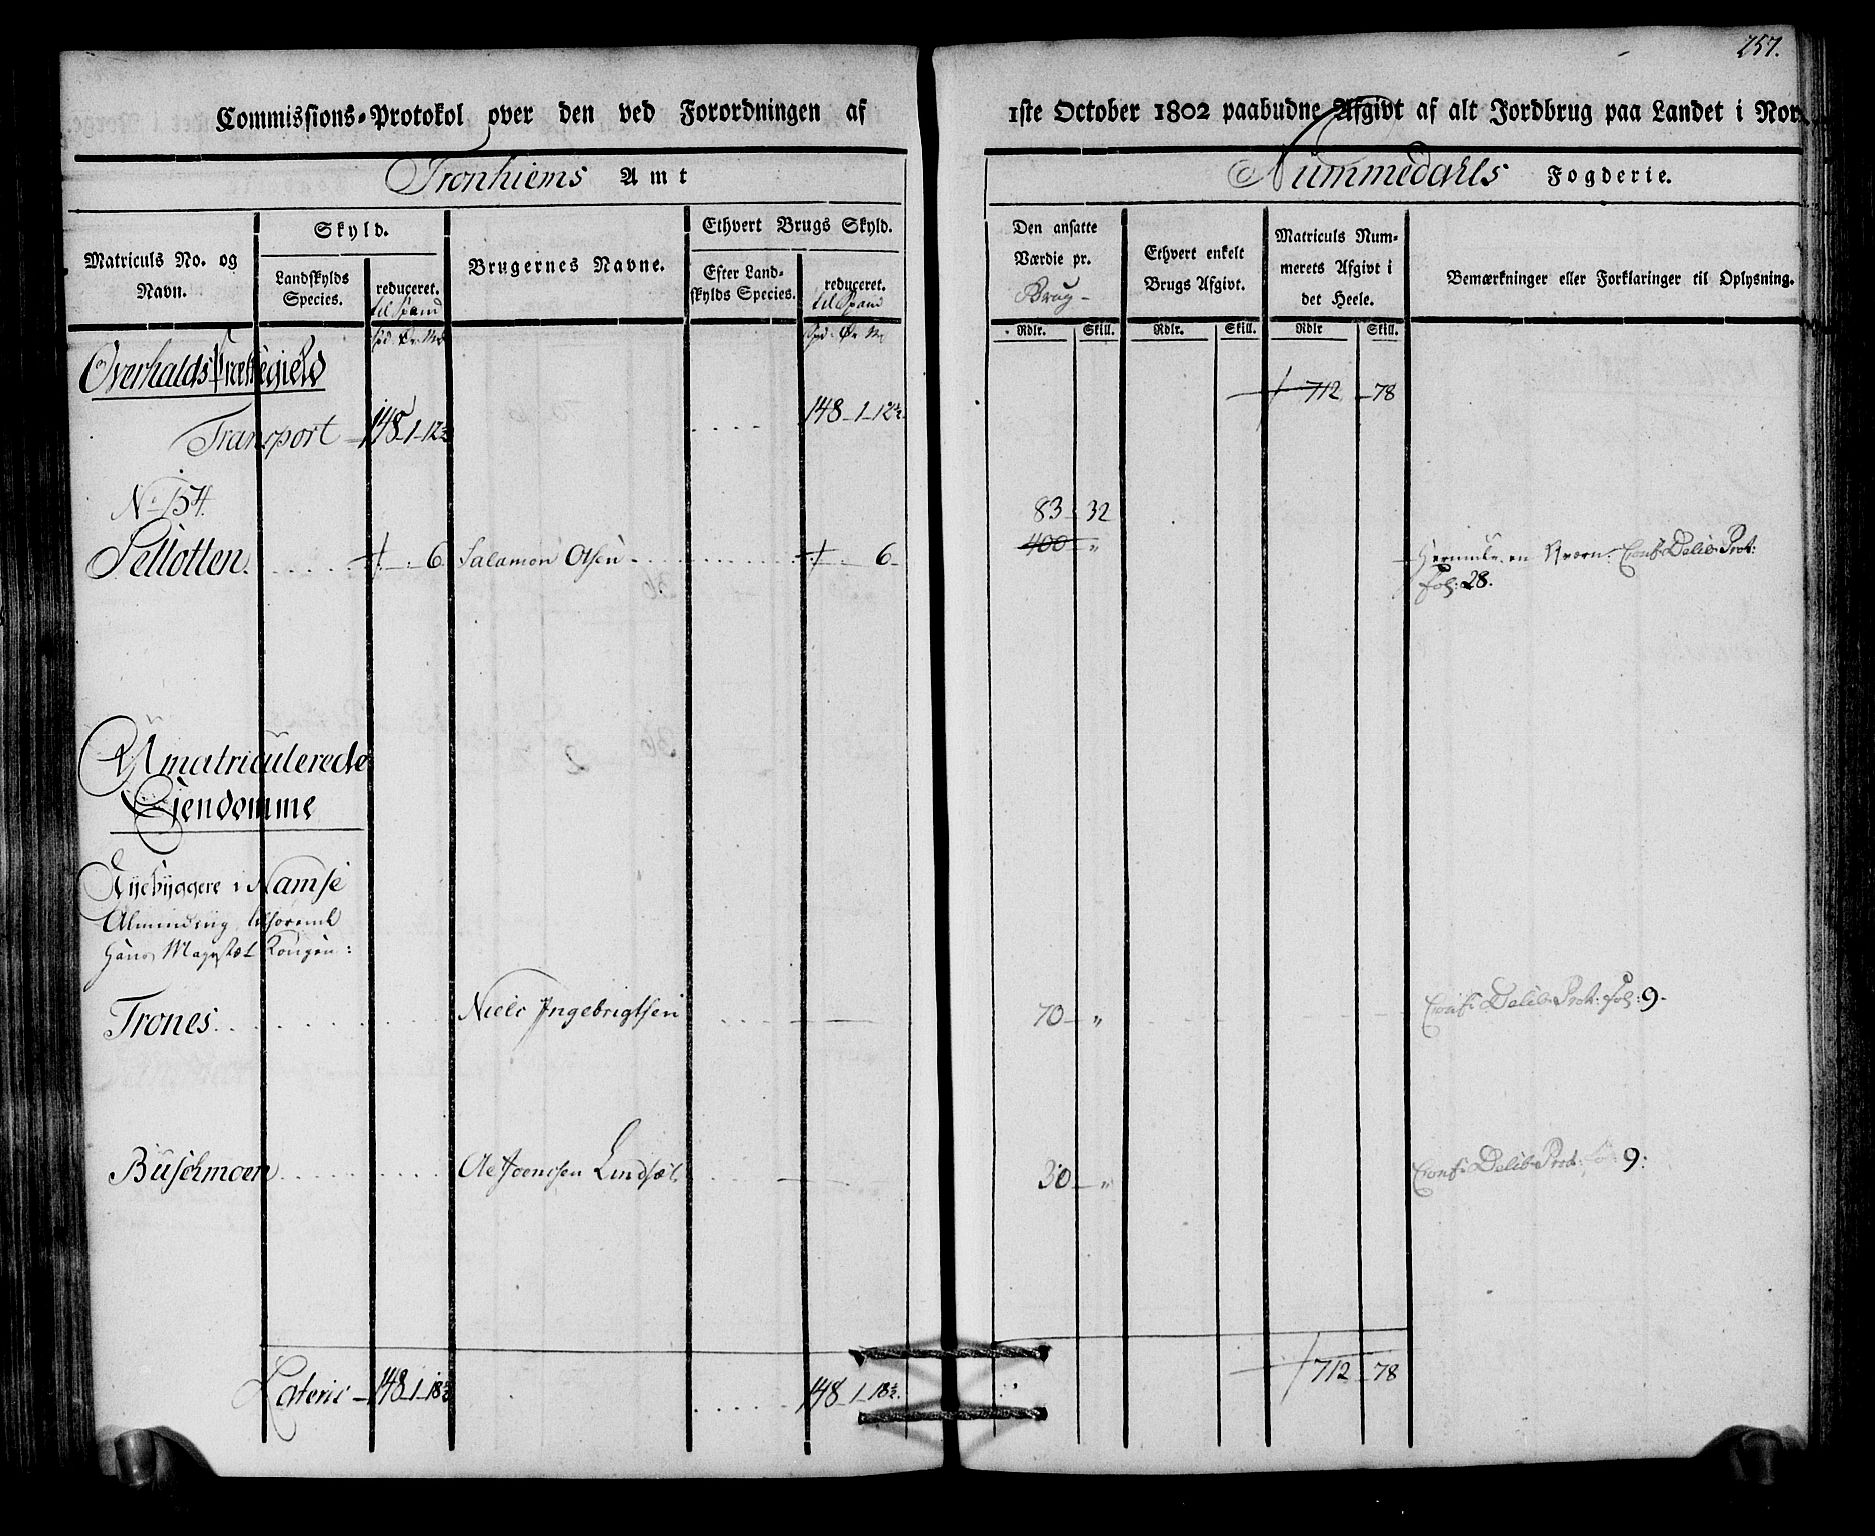 257.
Commissions-Protokol over den ved Forordningen af 1ste October 1802 paabudne Afgivt af alt Jordbrug paa Landet i Nor
Tronhiems Amt
Nummedahls Fogderie.
Matriculs No. og Navn.
Skyld.
Landskylds Species.
reduceret.
til Spand
Spd. Ør. Mk
Brugernes Navne.
Ethvert Brugs Skyld.
Efter Landskylds Species.
reduceret.
til Spand
Spd. Ør. Mk
Den ansatte Værdie pr.
Brug
Rdlr. Skill.
Ethvert enkelt Brugs Afgivt.
Rdlr. Skill.
Matriculs Nummerets Afgivt i det Heele.
Rdlr Skill.
Bemærkninger eller Forklaringer til Oplysning.
Overhalds Præstegield
Transport 148-1-12½ 148-1-12½ 712-78
No 154.
83-32
Sellotten 6 Salamon Olsen 6 400 " en Qværn. Conf: Delib: Prot:
Fol: 28.
Umatriculerede
Eiendomme
Nyebyggere i Namse
Alminding, tilhørende
Hans Majestæt Kongen:
Trones Niels Ingebrigtsen 70 " Conf: Delib: Prot: Fol: 9.
Buschmoen Ole Joensen 30 " Conf: Delib: Prot: Fol: 9:
Lateris 148-1-18½ 148-1-18½. 712-78